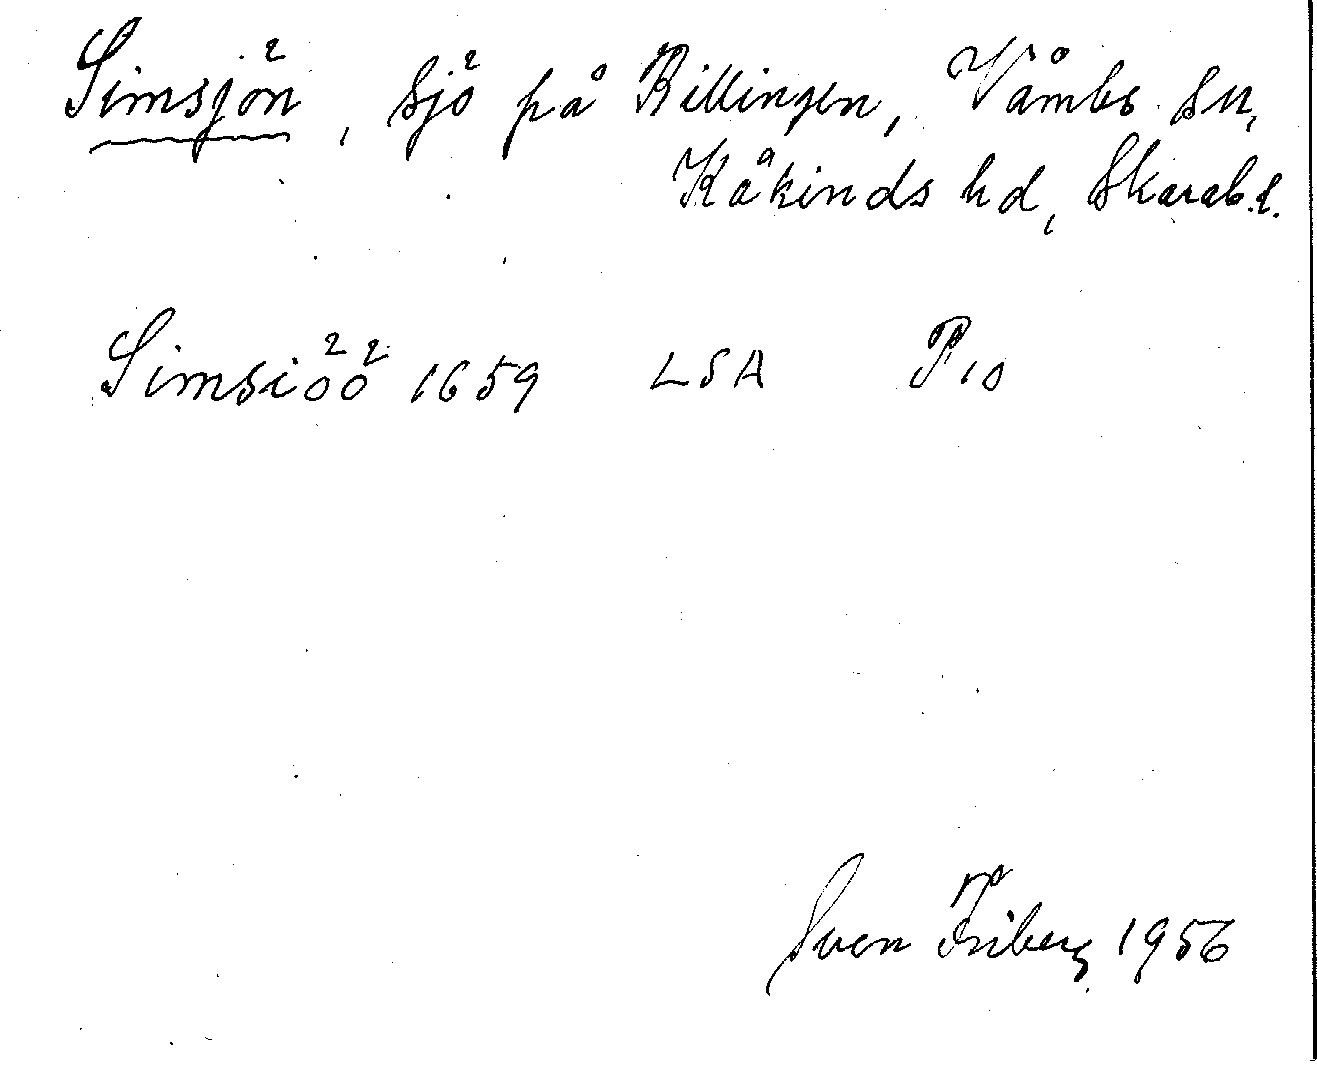 Simsjön, sjö på Billingen, Våmbs sn,
Kåkinds hd, Skarab.l.
Simsiöö 1659 LSA P10
Sven Friberg 1956